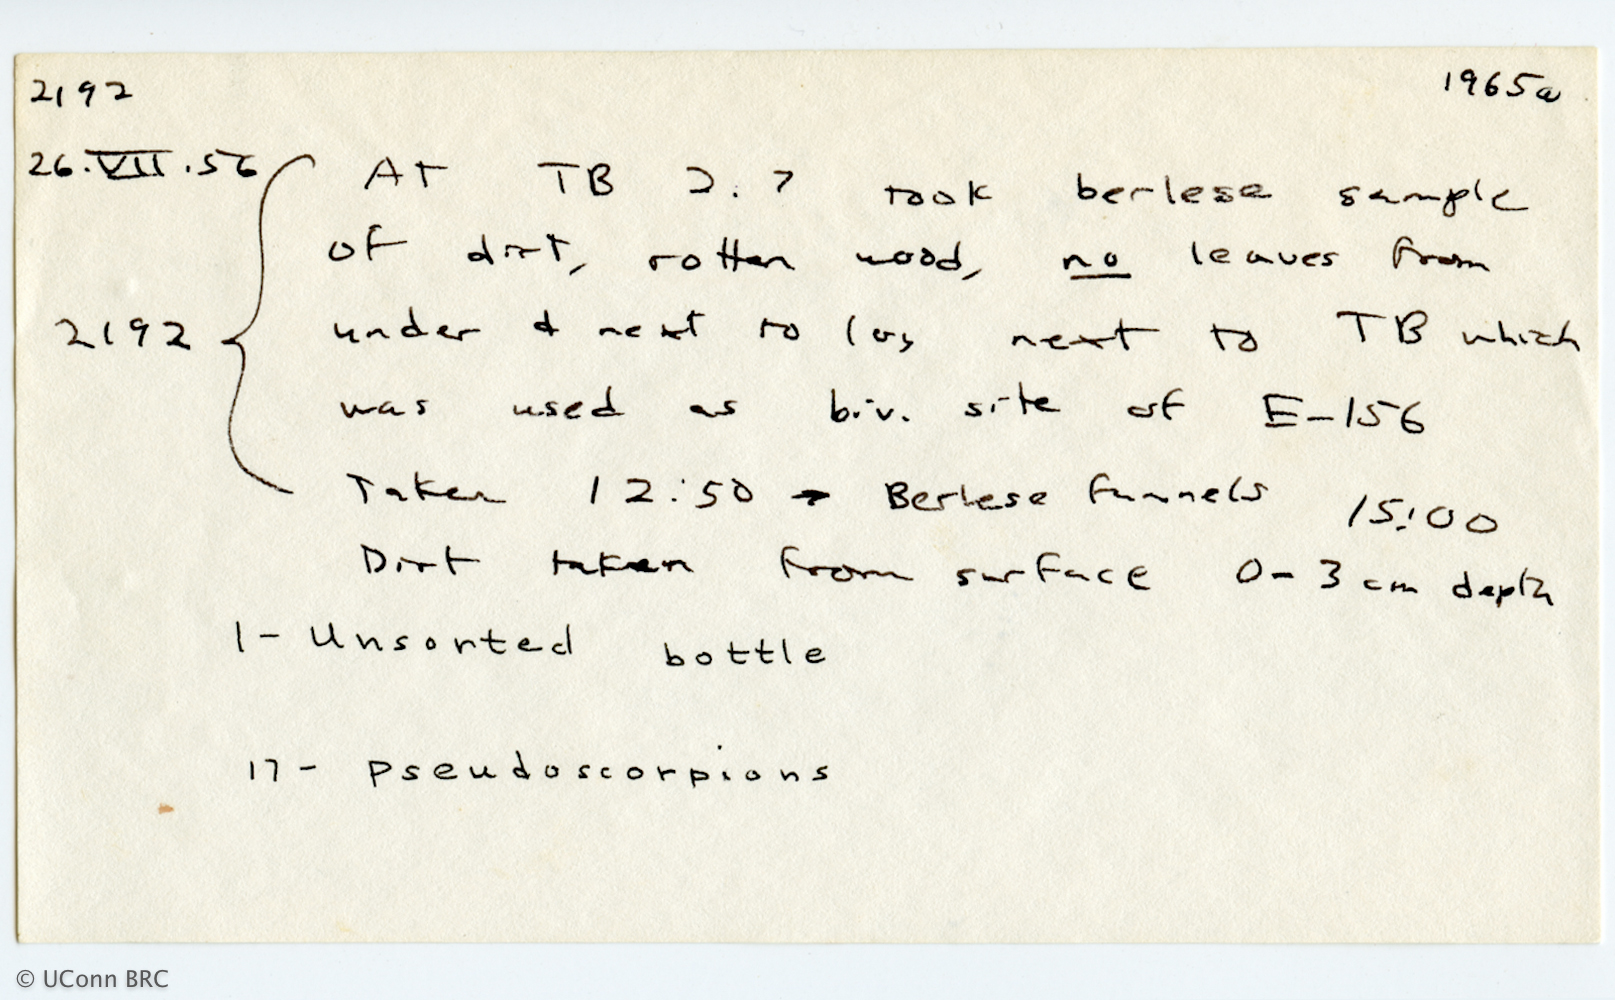 2192 1965a
26.VII.56 At TB 2.7 took berlese sample
of dirt, rotten wood, no leaves from
2192 under & next to log next to TB which
was used as biv. site of E-156
Taken 12:50 → Berlese funnels 15:00
Dirt taken from surface 0-3 cm depth
1- Unsorted bottle
17- pseudoscorpions
© UConn BRC